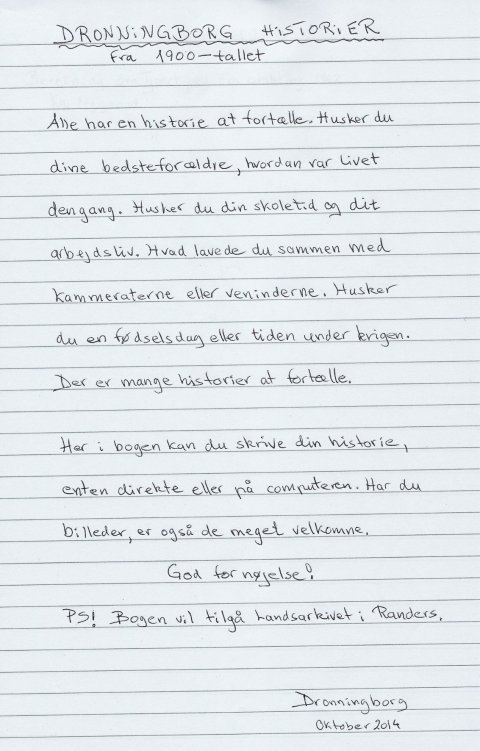 DRONNINGBORG HISTORIER
Fra 1900-tallet
Alle har en historie at fortælle. Husker du
dine bedsteforældre, hvordan var livet
dengang. Husker du din skoletid og dit
arbejdsliv. Hvad lavede du sammen med
kammeraterne eller veninderne. Husker
du en fødselsdag eller tiden under krigen.
Der er mange historier at fortælle.
Her i bogen kan du skrive din historie,
enten direkte eller på computeren. Har du
billeder, er også de meget velkomne.
God fornøjelse!
PS! Bogen vil tilgå Landsarkivet i Randers.
Dronningborg
Oktober 2014